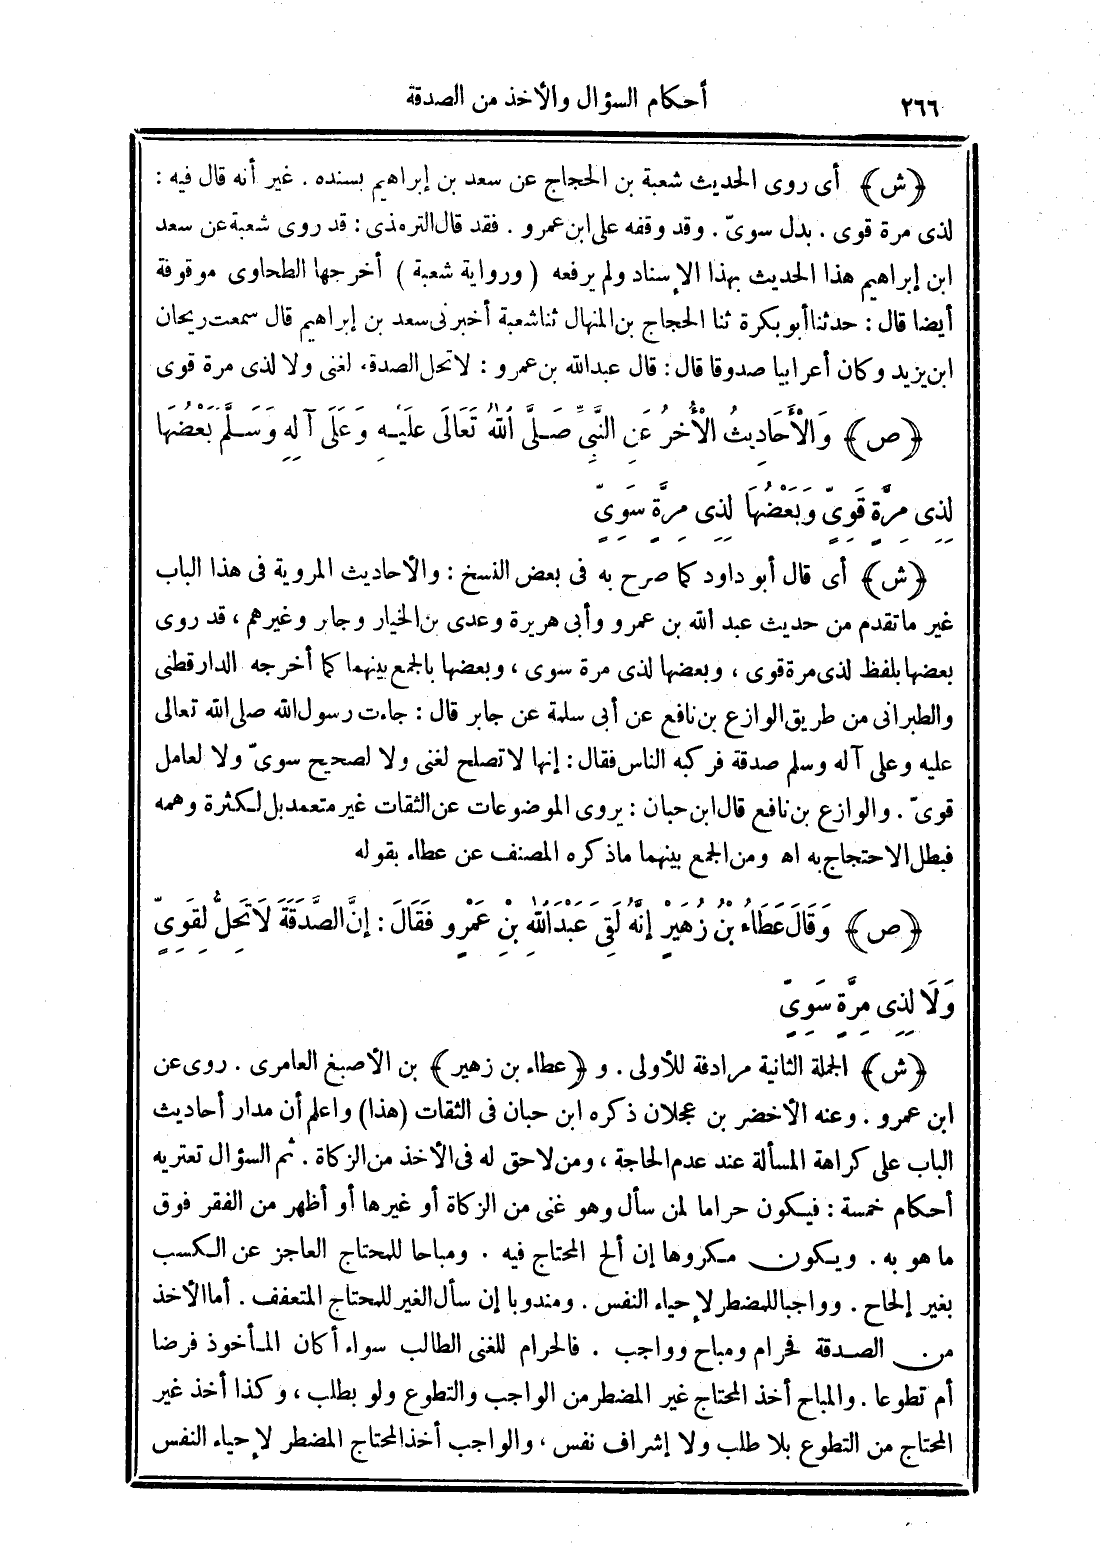 ٢٦٦ أحكام السؤال والأخذ من الصدقة
﴿ش﴾ أى روى الحديث شعبة بن الحجاج عن سعد بن إبراهيم بسنده . غير أنه قال فيه :
لذى مرة قوى . بدل سوىّ . وقد وقفه على ابن عمرو . فقد قال الترمذى : قد روى شعبة عن سعد
ابن إبراهيم هذا الحديث بهذا الإسناد ولم يرفعه ( ورواية شعبة ) أخرجها الطحاوى موقوفة
أيضا قال : حدثنا أبو بكرة ثنا الحجاج بن المنهال ثنا شعبة أخبرنى سعد بن إبراهيم قال سمعت ريحان
ابن يزيد وكان أعرابيا صدوقا قال : قال عبد الله بن عمرو : لا تحل الصدقة لغنى ولا لذى مرة قوى
﴿ص﴾ وَالْأَحَادِيثُ الْأُخَرُ عَنِ النَّبِيِّ صَلَّى اللهُ تَعَالَى عَلَيْهِ وَعَلَى آلِهِ وَسَلَّمَ بَعْضُهَا
لِذِى مِرَّةٍ قَوِيٍّ وَبَعْضُهَا لِذِى مِرَّةٍ سَوِيٍّ
﴿ش﴾ أى قال أبو داود كما صرح به فى بعض النسخ : والأحاديث المروية فى هذا الباب
غير ما تقدم من حديث عبد الله بن عمرو وأبى هريرة وعدى بن الخيار وجابر وغيرهم ، قد روى
بعضها بلفظ لذى مرة قوى ، وبعضها لذى مرة سوى ، وبعضها بالجمع بينهما كما أخرجه الدارقطنى
والطبرانى من طريق الوازع بن نافع عن أبى سلمة عن جابر قال : جاءت رسول الله صلى الله تعالى
عليه وعلى آله وسلم صدقة فركبه الناس فقال : إنها لا تصلح لغنى ولا لصحيح سوىّ ولا لعامل
قوىّ . والوازع بن نافع قال ابن حبان : يروى الموضوعات عن الثقات غير متعمد بل لكثرة وهمه
فبطل الاحتجاج به اه ومن الجمع بينهما ما ذكره المصنف عن عطاء بقوله
﴿ص﴾ وَقَالَ عَطَاءُ بْنُ زُهَيْرٍ إِنَّهُ لَقِىَ عَبْدَ اللهِ بْنَ عَمْرٍو فَقَالَ : إِنَّ الصَّدَقَةَ لَا تَحِلُّ لِقَوِيٍّ
وَلَا لِذِى مِرَّةٍ سَوِيٍّ
﴿ش﴾ الجملة الثانية مرادفة للأولى . و ﴿عطاء بن زهير﴾ بن الأصبغ العامرى . روى عن
ابن عمرو . وعنه الأخضر بن عجلان ذكره ابن حبان فى الثقات (هذا) واعلم أن مدار أحاديث
الباب على كراهة المسألة عند عدم الحاجة ، ومن لا حق له فى الأخذ من الزكاة . ثم السؤال تعتريه
أحكام خمسة : فيكون حراما لمن سأل وهو غنى من الزكاة أو غيرها أو أظهر من الفقر فوق
ما هو به . ويكون مكروها إن ألح المحتاج فيه . ومباحا للمحتاج العاجز عن الكسب
بغير إلحاح . وواجبا للمضطر لإحياء النفس . ومندوبا إن سأل الغير للمحتاج المتعفف . أما الأخذ
من الصدقة فحرام ومباح وواجب . فالحرام للغنى الطالب سواء أكان المأخوذ فرضا
أم تطوعا . والمباح أخذ المحتاج غير المضطر من الواجب والتطوع ولو بطلب ، وكذا أخذ غير
المحتاج من التطوع بلا طلب ولا إشراف نفس ، والواجب أخذ المحتاج المضطر لإحياء النفس